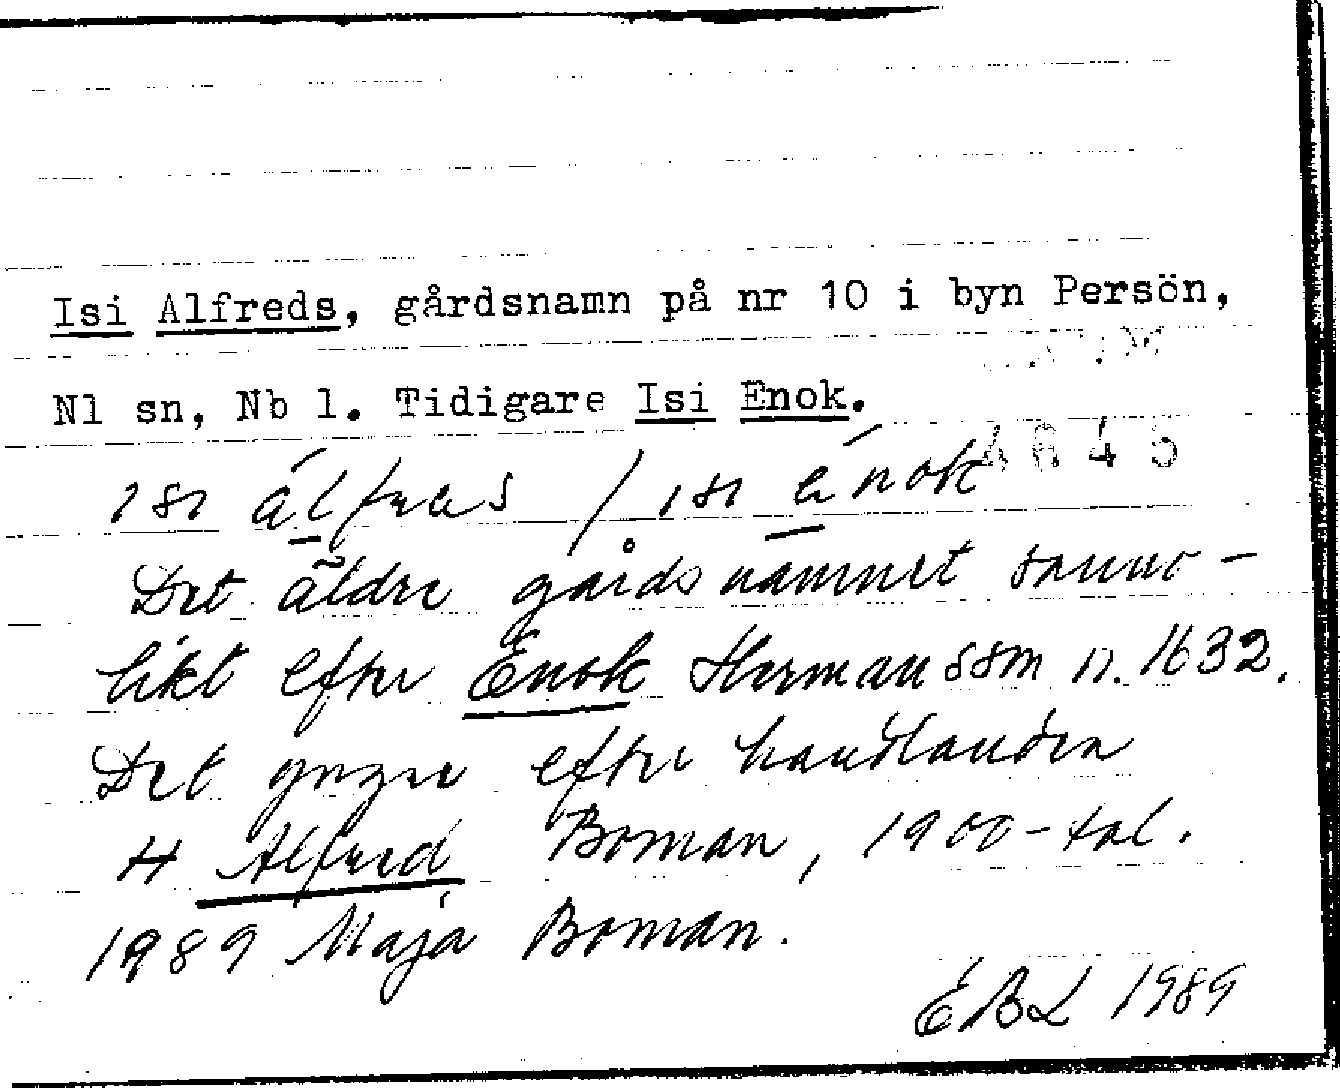 Isi Alfreds, gårdsnamn på nr 10 i byn Persön,
Nl sn, Nb l. Tidigare Isi Enok.
4645
ısı álfreds / ısı énok
Det äldre gårdsnamnet sanno-
likt efter Enok Hermansson n. 1632.
Det yngre efter handlanden
H Alfred Boman, 1900-tal.
1989 Maja Boman.
EBL 1989